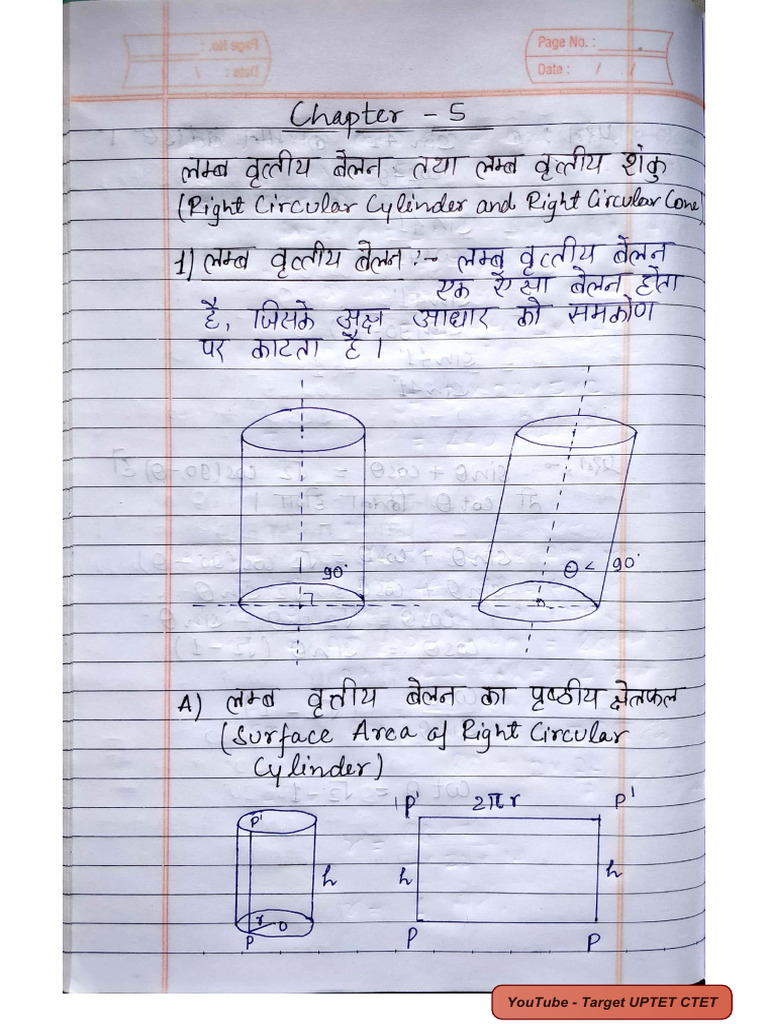 Page No. :
Date : / /
Chapter - 5
लम्ब वृत्तीय बेलन तथा लम्ब वृत्तीय शंकु
(Right Circular Cylinder and Right Circular Cone)
1) लम्ब वृत्तीय बेलन :- लम्ब वृत्तीय बेलन
एक ऐसा बेलन होता
है, जिसके अक्ष आधार को समकोण
पर काटता है।
90°
θ < 90°
A) लम्ब वृत्तीय बेलन का पृष्ठीय क्षेत्रफल
(Surface Area of Right Circular
Cylinder)
P' 2πr P'
P'
h h h
r O
P P P
YouTube - Target UPTET CTET